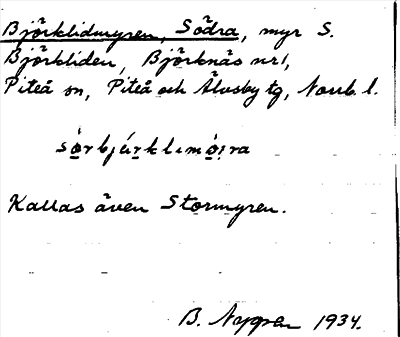 Björklidmyren, Södra, myr S.
Björkliden, Björknäs nr 1,
Piteå sn, Piteå och Älvsby tg, Norrb. l.
sö̱rbjúṟklımö̱ıra
Kallas även Stormyren.
B. Nygren 1934.